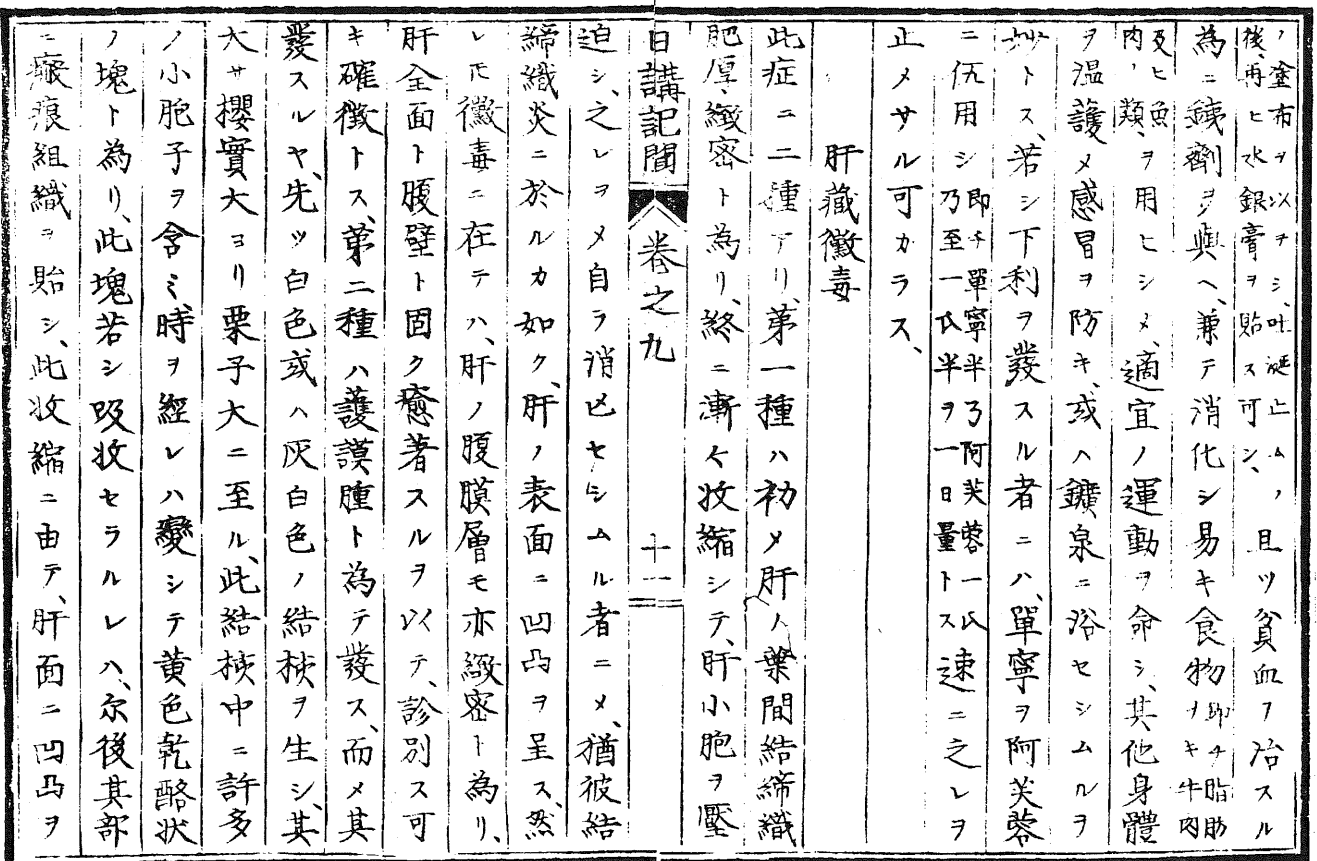 ノ塗布ヲ以テシ、吐涎止ムノ後、再ヒ水銀膏ヲ貼ス可シ、且ツ貧血ヲ治スル
為ニ鉄劑ヲ與ヘ、兼テ消化シ易キ食物即チ脂肪ナキ牛肉
及ヒ魚肉ノ類、ヲ用ヒシメ、適宜ノ運動ヲ命シ、其他身體
ヲ温護メ感冒ヲ防キ、或ハ鑛泉ニ浴セシムルヲ
妙トス、若シ下利ヲ發スル者ニハ、單寧ヲ阿芙蓉
ニ伍用シ即チ單寧半ヲ阿芙蓉一氏乃至一氏半ヲ一日量トス速ニ之レヲ
止メサル可カラス、
肝藏黴毒
此症ニ二種アリ、第一種ハ初メ肝ノ葉間結締織
肥厚緻密ト為リ、終ニ漸ク收縮シテ、肝小胞ヲ壓
日講記聞 卷之九 十一
迫シ、之レヲメ自ラ消亡セシムル者ニメ、猶彼結
締織炎ニ於ルカ如ク、肝ノ表面ニ凹凸ヲ呈ス、然
レ𪜈黴毒ニ在テハ、肝ノ腹膜層モ亦緻密ト為リ、
肝全面ト腹壁ト固ク癒著スルヲ以テ、診別ス可
キ確徴トス、第二種ハ護謨腫ト為テ發ス、而メ其
發スルヤ、先ツ白色或ハ灰白色ノ結核ヲ生シ、其
大サ櫻實大ヨリ栗子大ニ至ル、此結核中ニ許多
ノ小胞子ヲ含ミ、時ヲ經レハ變シテ黄色乾酪狀
ノ塊ト為リ、此塊若シ吸收セラルレハ、尓後其部
ニ瘢痕組織ヲ貽シ、此收縮ニ由テ、肝面ニ凹凸ヲ